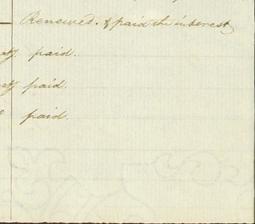 Renewed. & paid the interest
paid.
paid.
paid.